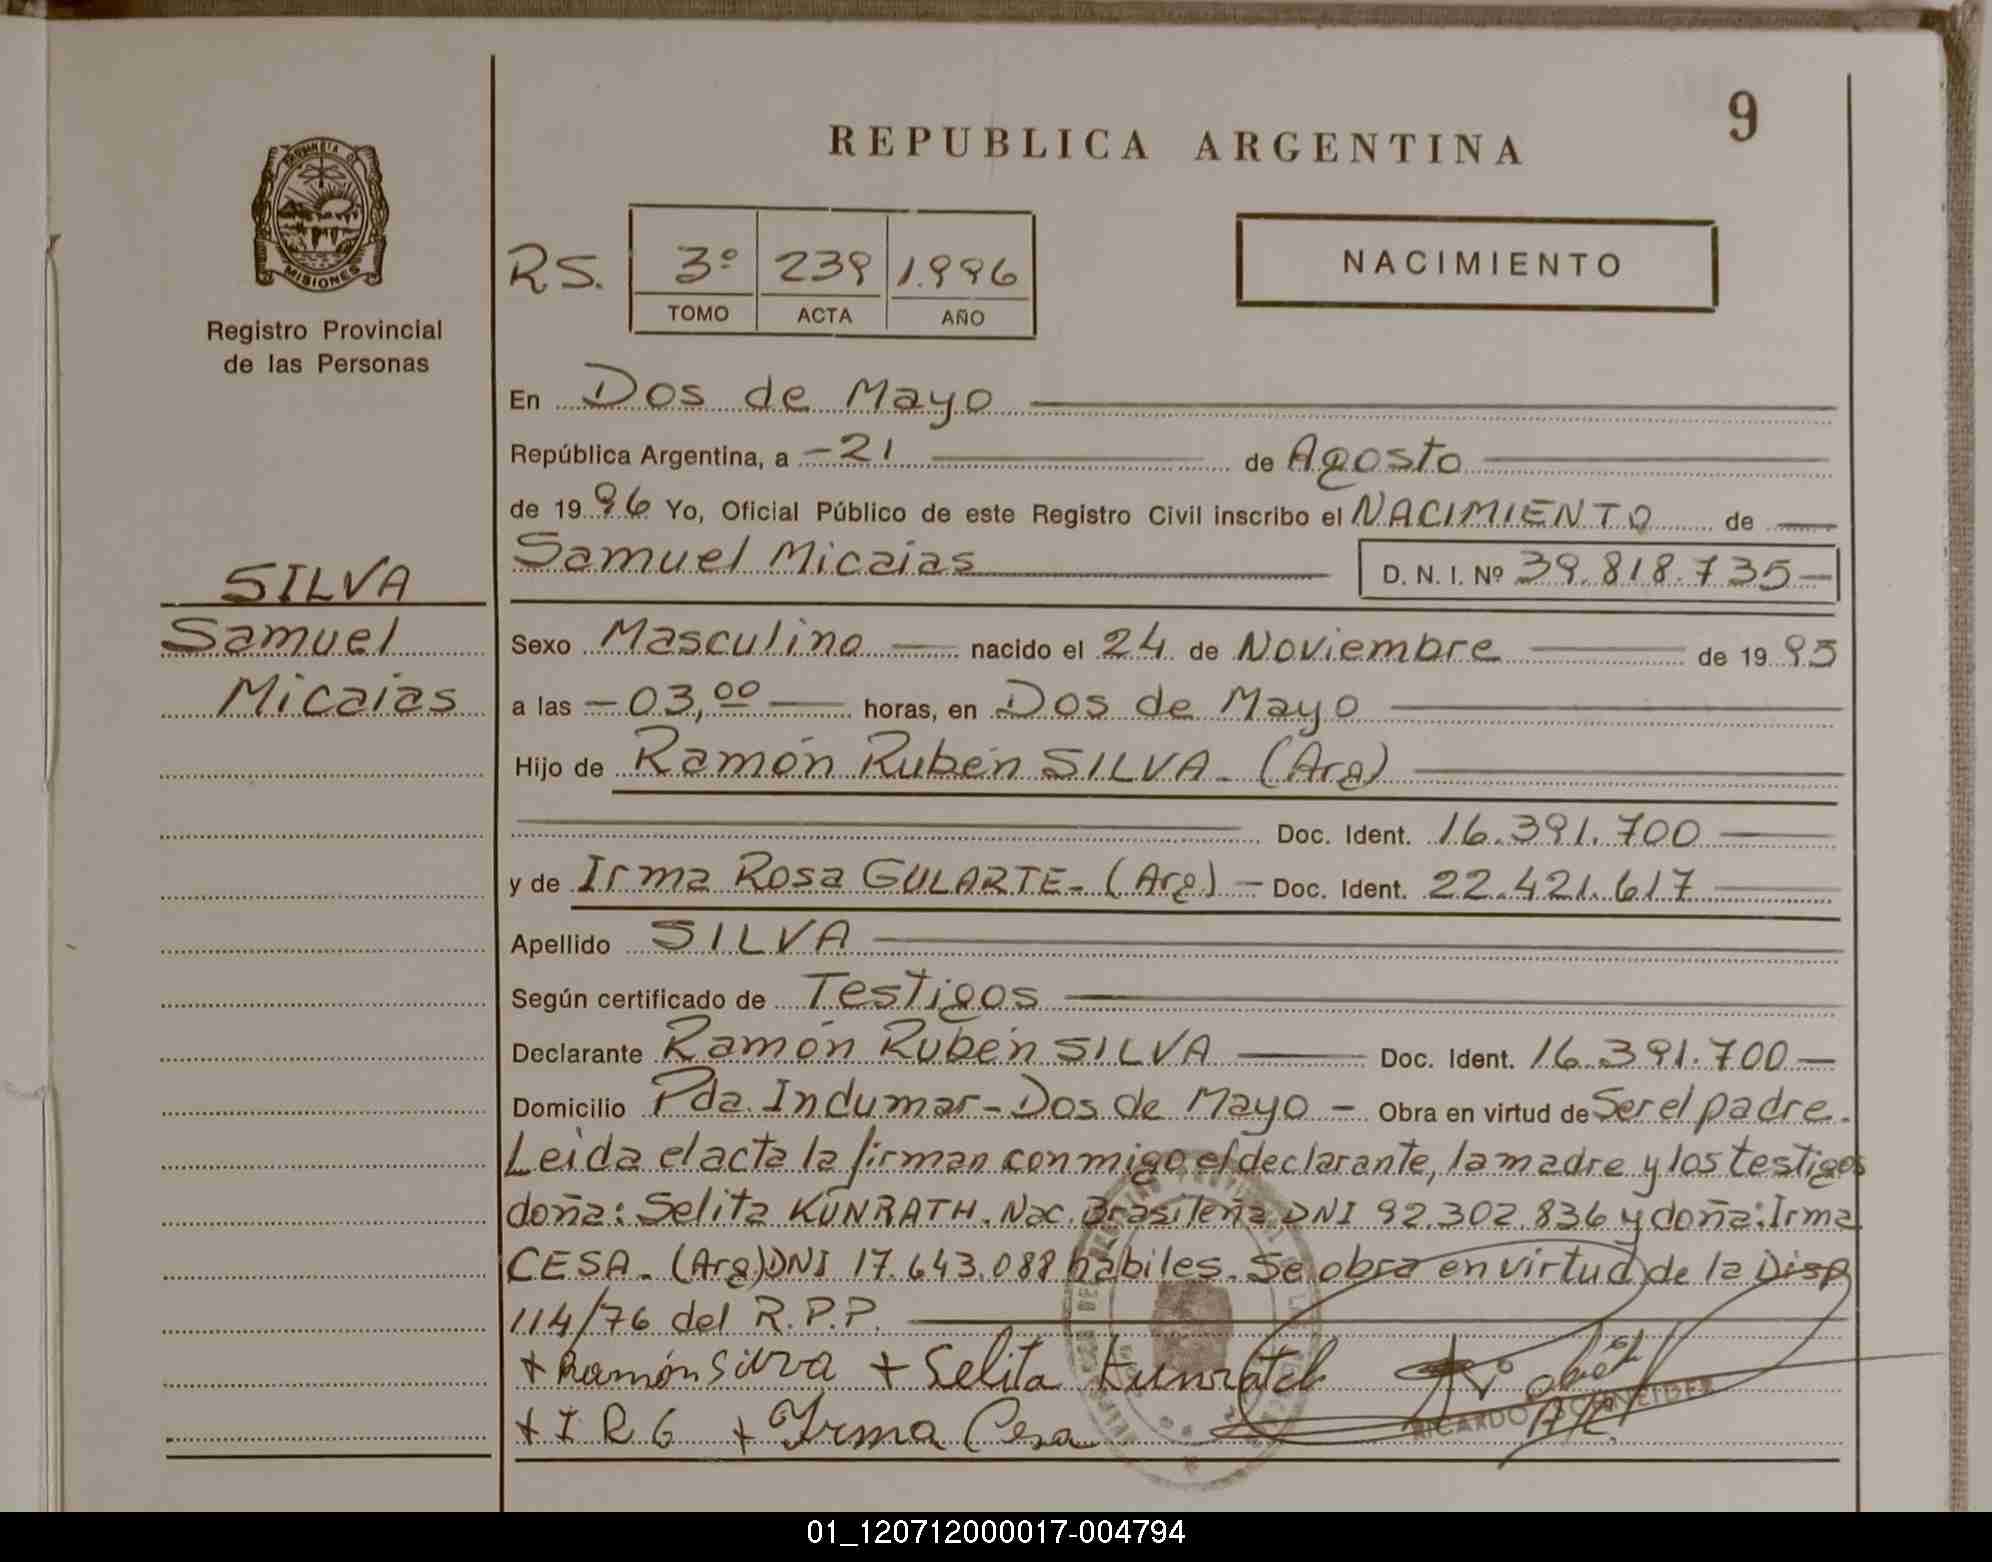 9
REPUBLICA ARGENTINA
PROVINCIA DE
MISIONES
Registro Provincial
de las Personas
RS.
3º 239 1.996
TOMO ACTA AÑO
NACIMIENTO
En Dos de Mayo
República Argentina, a -21 de Agosto
de 1996 Yo, Oficial Público de este Registro Civil inscribo el NACIMIENTO de
Samuel Micaias D. N. I. Nº 39.818.735
SILVA
Samuel
Micaias
Sexo Masculino nacido el 24 de Noviembre de 1995
a las -03,00 horas, en Dos de Mayo
Hijo de Ramón Rubén SILVA - (Arg)
Doc. Ident. 16.391.700
y de Irma Rosa GULARTE - (Arg) - Doc. Ident. 22.421.617
Apellido SILVA
Según certificado de Testigos
Declarante Ramón Rubén SILVA Doc. Ident. 16.391.700
Domicilio Pda. Indumar - Dos de Mayo - Obra en virtud de Ser el padre.
Leida el acta la firman conmigo el declarante, la madre y los testigos
doña: Selita KUNRATH. Nac. Brasileña DNI 92.302.836 y doña: Irma
CESA - (Arg) DNI 17.643.088 habiles. Se obra en virtud de la Disp
114/76 del R.P.P.
+ Ramón Silva + Selita Kunrath
+ I R G + Irma Cesa
RICARDO SCHNEIDER
01_120712000017-004794